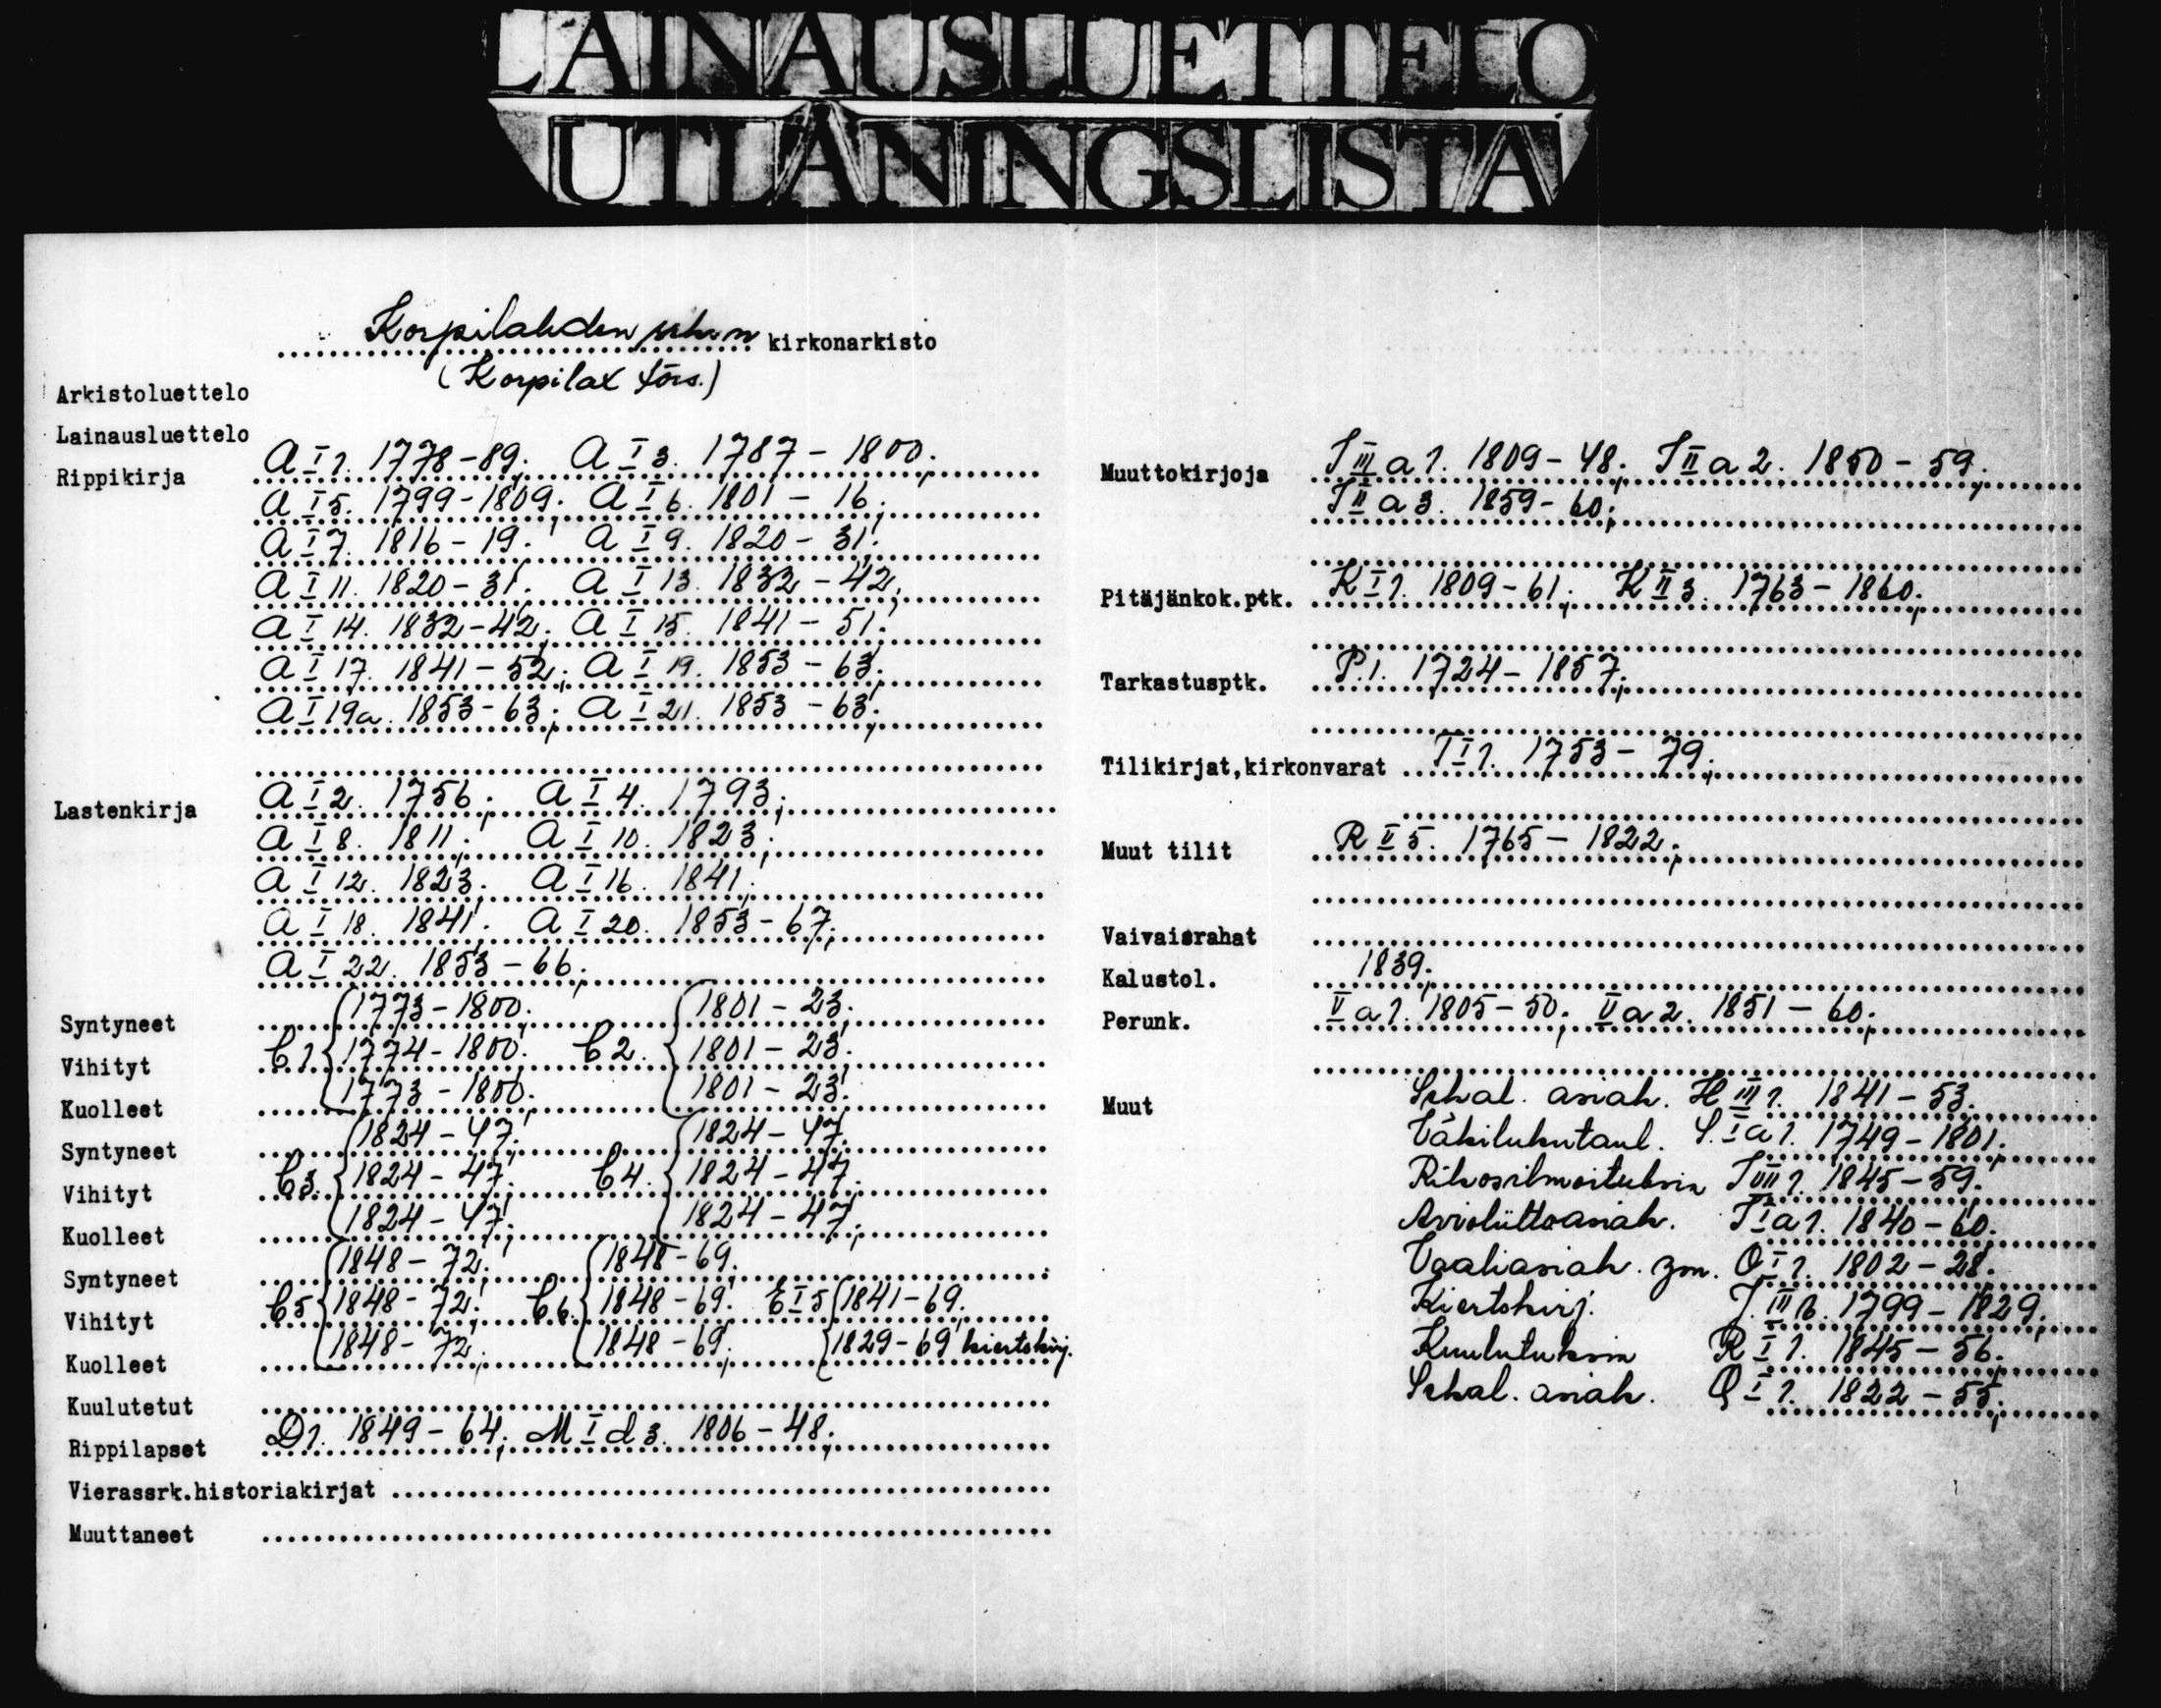 LAINAUSLUETTELO
UTLÅNINGSLISTA
Korpilahden srk:n kirkonarkisto
(Korpilax förs.)
Arkistoluettelo
Lainausluettelo
Rippikirja A I 1. 1778-89; A I 3. 1787-1800;
A I 5. 1799-1809; A I 6. 1801-16;
A I 7. 1816-19; A I 9. 1820-31;
A I 11. 1820-31; A I 13. 1832-42;
A I 14. 1832-42; A I 15. 1841-51;
A I 17. 1841-52; A I 19. 1853-63;
A I 19a. 1853-63; A I 21. 1853-63;
Lastenkirja A I 2. 1756; A I 4. 1793;
A I 8. 1811; A I 10. 1823;
A I 12. 1823; A I 16. 1841;
A I 18. 1841; A I 20. 1853-67;
A I 22. 1853-66;
Syntyneet 1773-1800; 1801-23;
Vihityt C 1 1774-1800; C 2. 1801-23;
Kuolleet 1773-1800; 1801-23;
Syntyneet 1824-47; 1824-47;
Vihityt C 3. 1824-47; C 4. 1824-47;
Kuolleet 1824-47; 1824-47;
Syntyneet 1848-72; 1848-69;
Vihityt C 5 1848-72; C 6. 1848-69; E I 5 1841-69;
Kuolleet 1848-72; 1848-69; 1829-69 kiertokirj.
Kuulutetut
Rippilapset D 1. 1849-64; M I d 3. 1806-48;
Vierassrk.historiakirjat
Muuttaneet
Muuttokirjoja a 1. 1809-48; a 2. 1850-59;
a 3. 1859-60;
Pitäjänkok.ptk. K I 1. 1809-61; K II 3. 1763-1860;
Tarkastusptk. P.1. 1724-1857;
Tilikirjat,kirkonvarat 1753-79;
Muut tilit R II 5. 1765-1822;
Vaivaisrahat
Kalustol. 1839;
Perunk. V a 1. 1805-50; V a 2. 1851-60;
Muut Sekal. asiak. H III 1. 1841-53;
Väkilukutaul. I a 1. 1749-1801;
Rikosilmoituksia 1845-59;
Avioliittoasiak. I a 1. 1840-60;
Vaaliasiak. ym. O I 1. 1802-28;
Kiertokirj. 1799-1829;
Kuulutuksia R I 1. 1845-56;
Sekal. asiak. Q I 1. 1822-55;